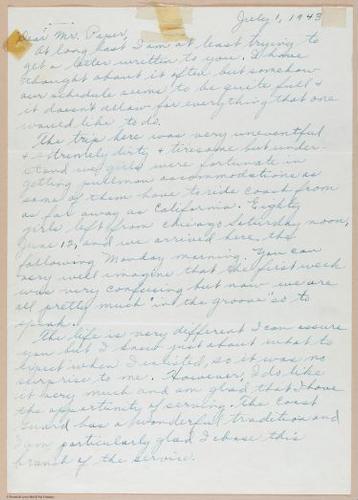 July 1, 1943
Dear Mr. Paper,
At long last I am at least trying to
get a letter written to you. I have
thought about it often but somehow
our schedule seems to be quite full &
it doesn't allow for everything that one
would like to do.
The trip here was very uneventful
& extremely dirty & tiresome but under-
stand we girls were fortunate in
getting pullman accommodations as
some of them have to ride coach from
as far away as California. Eighty
girls left from Chicago Saturday noon,
June 12, and we arrived here, the
following Monday morning. You can
very well imagine that the first week
was very confusing but now we are
all pretty much "in the groove" so to
speak.
The life is very different I can assure
you but I knew just about what to
expect when I enlisted, so it was no
surprise to me. However, I do like
it very much and am glad that I have
the opportunity of serving. The Coast
Guard has a wonderful tradition and
I am particularly glad I chose this
branch of the service.